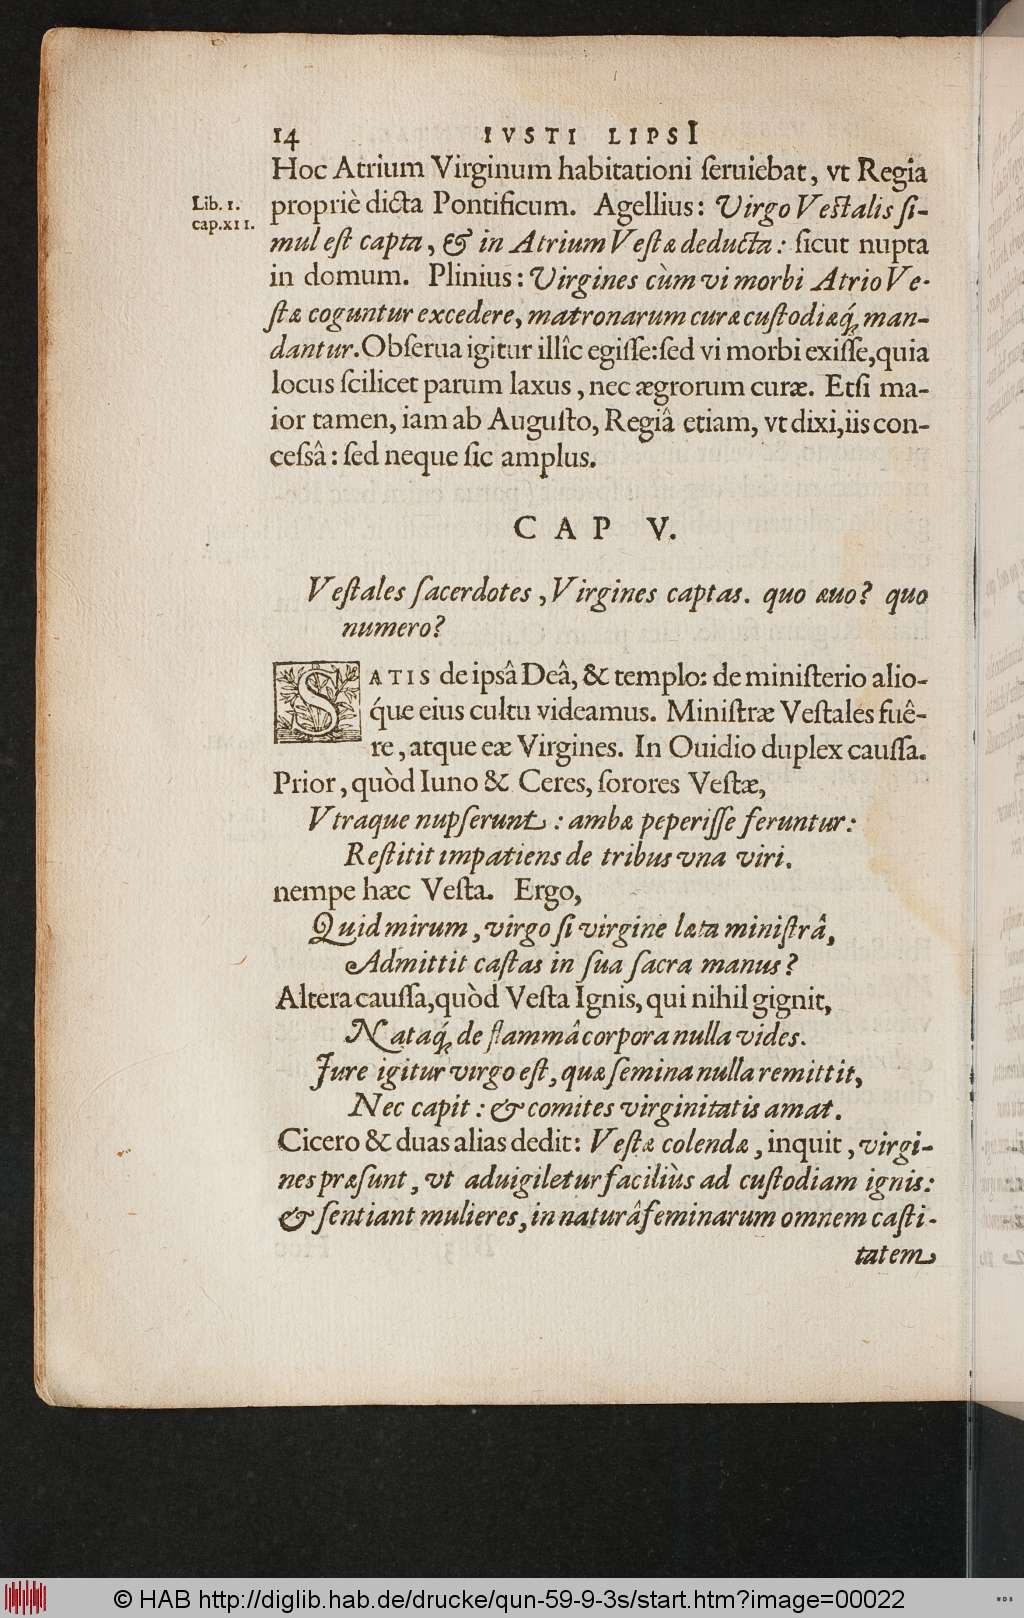 14 IVSTI LIPSI
Hoc Atrium Virginum habitationi ſeruiebat, vt Regia
Lib. 1.
cap.XII.
propriè dicta Pontificum. Agellius: Virgo Veſtalis ſi-
mul eſt capta, & in Atrium Veſtæ deducta: ſicut nupta
in domum. Plinius: Virgines cùm vi morbi Atrio Ve-
ſtæ coguntur excedere, matronarum curæ cuſtodiæq́; man-
dantur. Obſerua igitur illîc egiſſe: ſed vi morbi exiſſe, quia
locus ſcilicet parum laxus, nec ægrorum curæ. Etſi ma-
ior tamen, iam ab Auguſto, Regiâ etiam, vt dixi, iis con-
ceſsâ: ſed neque ſic amplus.
CAP V.
Veſtales ſacerdotes, Virgines captas. quo æuo? quo
numero?
SATIS de ipsâ Deâ, & templo: de miniſterio alio-
q́ue eius cultu videamus. Miniſtræ Veſtales fuê-
re, atque eæ Virgines. In Ouidio duplex cauſſa.
Prior, quòd Iuno & Ceres, ſorores Veſtæ,
Vtraque nupſerunt: ambæ peperiſſe feruntur:
Reſtitit impatiens de tribus vna viri.
nempe hæc Veſta. Ergo,
Quid mirum, virgo ſi virgine læta miniſtrâ,
Admittit caſtas in ſua ſacra manus?
Altera cauſſa, quòd Veſta Ignis, qui nihil gignit,
Nataq́; de flammâ corpora nulla vides.
Iure igitur virgo eſt, quæ ſemina nulla remittit,
Nec capit: & comites virginitatis amat.
Cicero & duas alias dedit: Veſtæ colendæ, inquit, virgi-
nes præſunt, vt aduigiletur faciliùs ad cuſtodiam ignis:
& ſentiant mulieres, in naturâ feminarum omnem caſti-
tatem
© HAB http://diglib.hab.de/drucke/qun-59-9-3s/start.htm?image=00022